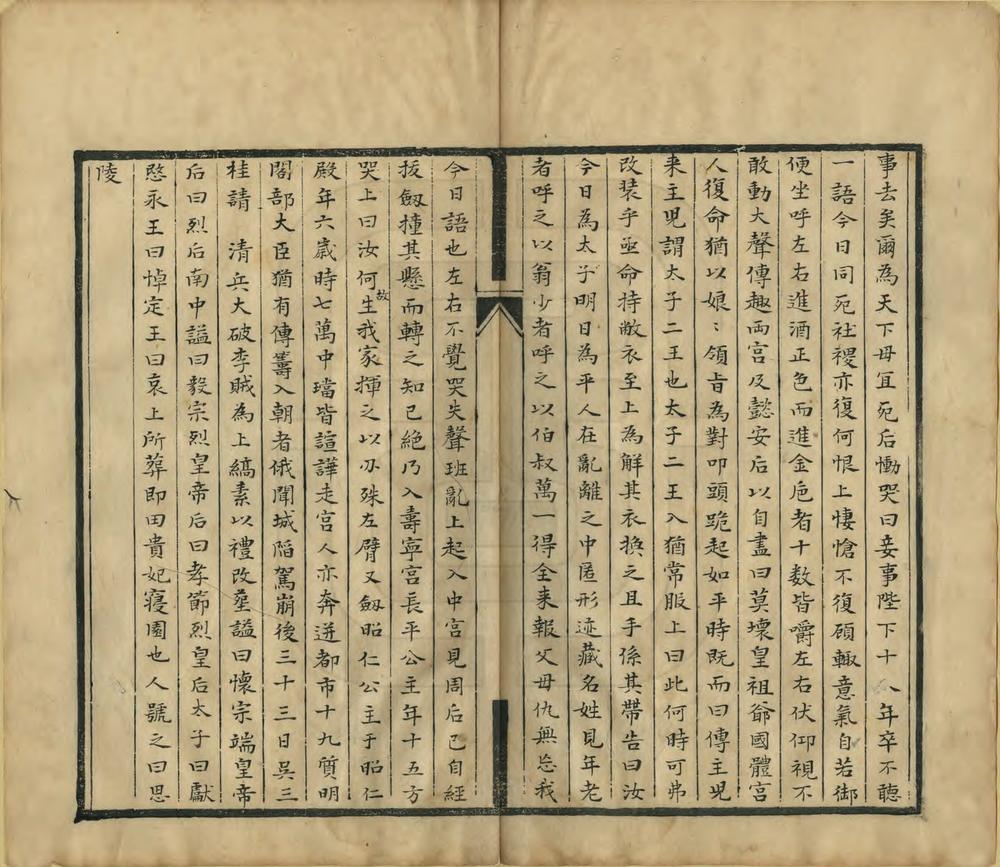 事去矣爾為天下母宜死后慟哭曰妾事陛下十八年卒不聽
一語今日同死社稷亦復何恨上悽愴不復顧輙意氣自若御
便坐呼左右進酒正色而進金卮者十數皆嚼左右伏仰視不
敢動大聲傳趣両宫及懿安后以自盡曰莫壞皇祖爺國體宫
人復命猶以娘〻領㫖為對叩頭跪起如平時既而曰傳主児
来主児謂太子二王也太子二王入猶常服上曰此何時可弗
改装乎亟命持敝衣至上為解其衣換之且手係其帶告曰汝
今日為太子明日為平人在亂離之中匿形迹藏名姓見年老
者呼之以翁少者呼之以伯叔萬一得全来報父母仇無忘我
今日語也左右不覺哭失聲班亂上起入中宫見周后已自經
拔劔撞其懸而轉之知已絶乃入壽寧宫長平公主年十五方
哭上曰汝何故生我家揮之以刃殊左臂又劔昭仁公主于昭仁
殿年六嵗時七萬中璫皆諠譁走宫人亦奔迸都市十九質明
閣部大臣猶有傳籌入朝者俄聞城陷駕崩後三十三日吳三
桂請　清兵大破李賊為上縞素以禮改塟謚曰懷宗端皇帝
后曰烈后南中謚曰毅宗烈皇帝后曰孝節烈皇后太子曰獻
愍永王曰悼定王曰哀上所葬即田貴妃寢園也人號之曰思
陵